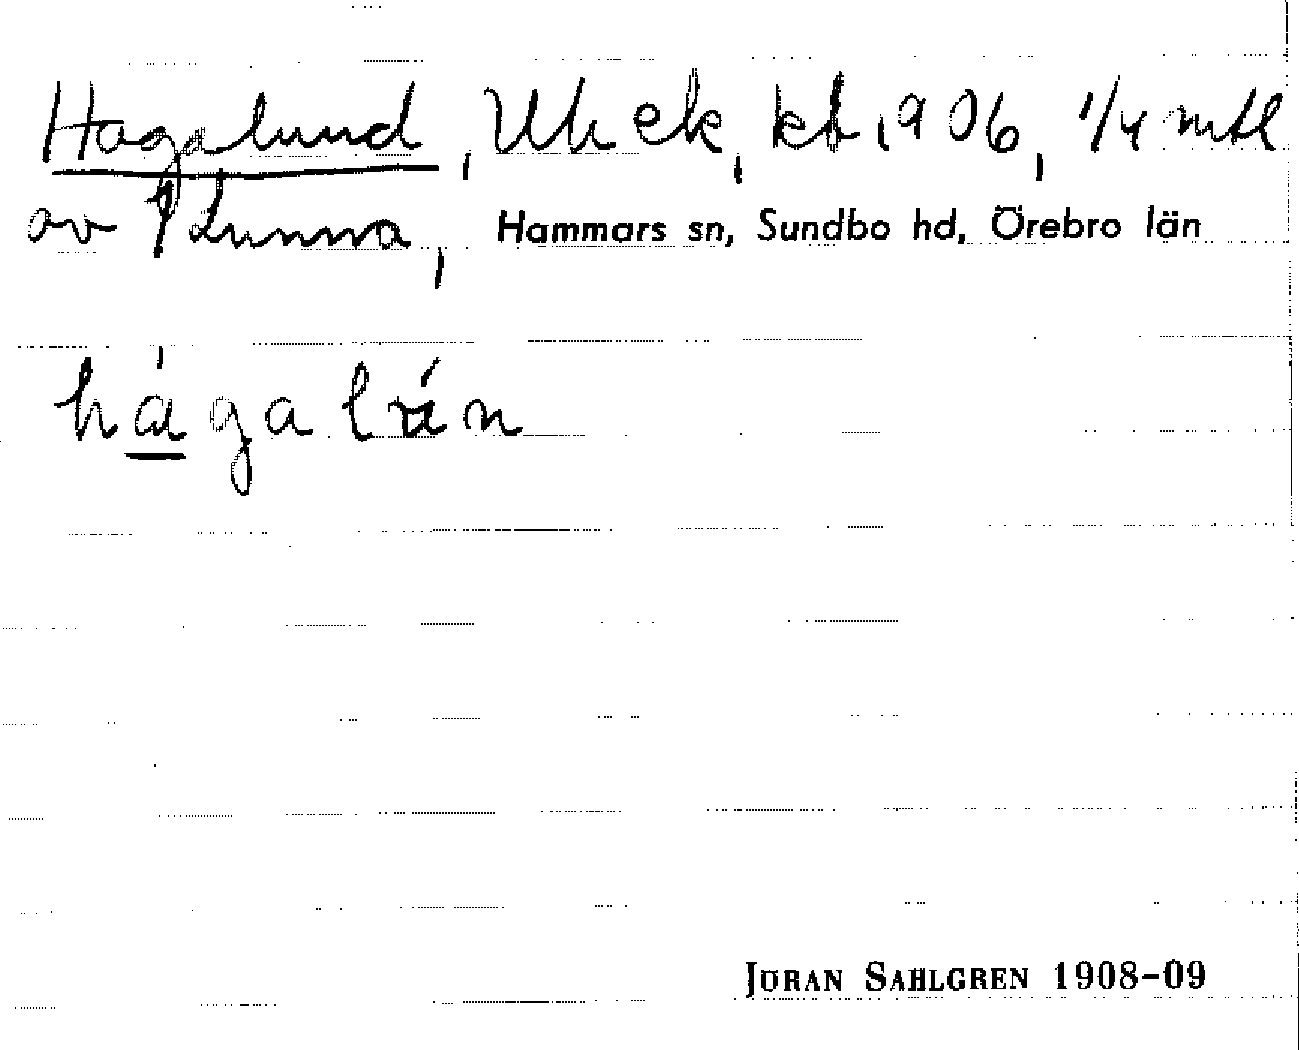 Hagalund, Uh ek, kb 1906, 1/4 mtl
av 1 Lunna, Hammars sn, Sundbo hd, Örebro län
hágalún
JÖRAN SAHLGREN 1908-09